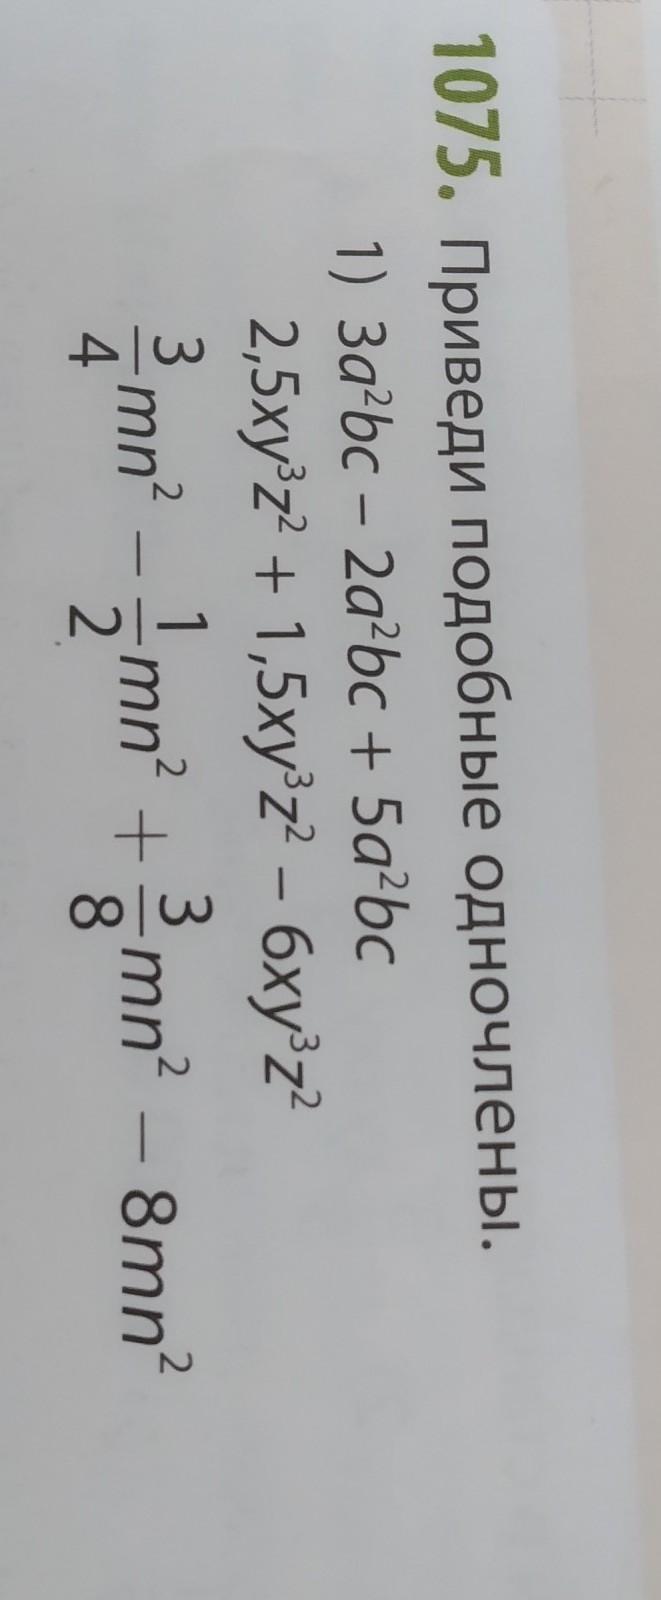 1075. Приведи подобные одночлены.
1) 3a²bc – 2a²bc + 5a²bc
2,5xy³z² + 1,5xy³z² – 6xy³z²
3/4 mn² – 1/2 mn² + 3/8 mn² – 8mn²